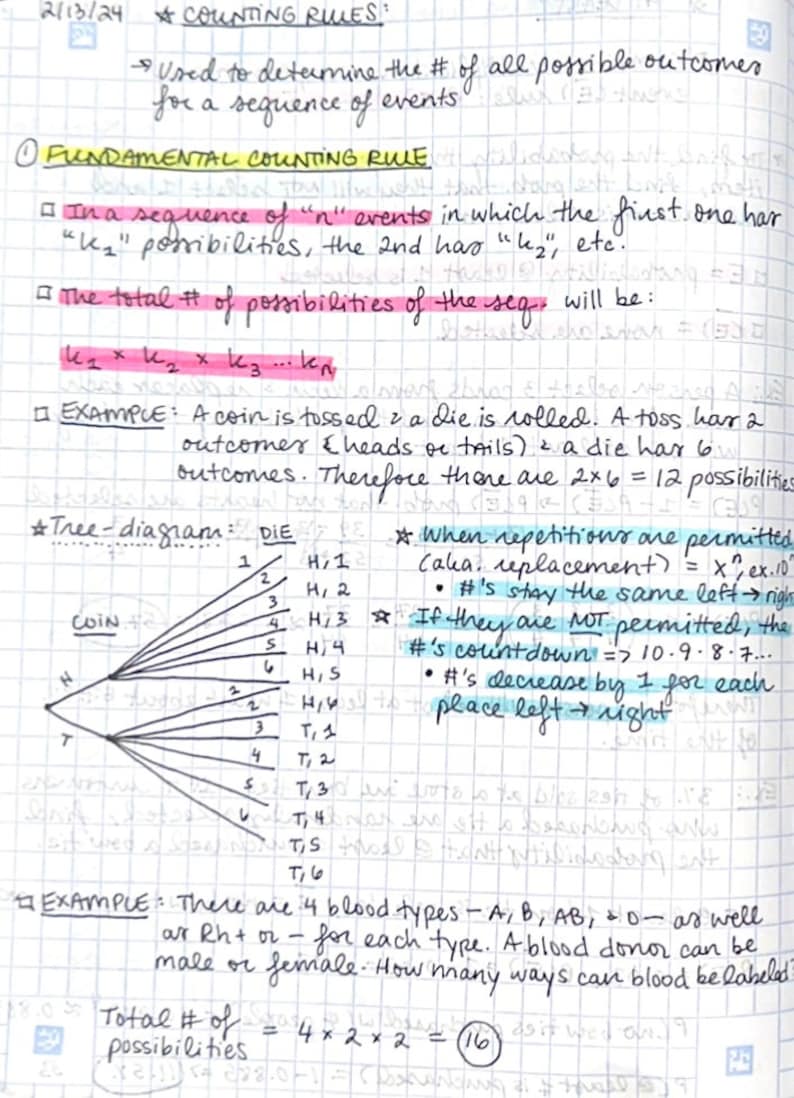 2/13/24 ☆ COUNTING RULES:
→ Used to determine the # of all possible outcomes
for a sequence of events
① FUNDAMENTAL COUNTING RULE
□ In a sequence of "n" events in which the first one has
"k₁" possibilities, the 2nd has "k₂", etc.
□ The total # of possibilities of the seq. will be:
k₁ × k₂ × k₃ ... kₙ
□ EXAMPLE: A coin is tossed & a die is rolled. A toss has 2
outcomes (heads or tails) & a die has 6
outcomes. Therefore there are 2×6 = 12 possibilities
☆ Tree-diagram:
COIN
H
T
DIE
1
2
3
4
5
6
1
2
3
4
5
6
H, 1
H, 2
H, 3
H, 4
H, 5
H, 6
T, 1
T, 2
T, 3
T, 4
T, 5
T, 6
☆ When repetitions are permitted
(aka: replacement) = xⁿ, ex. 10ⁿ
• #'s stay the same left → righ
☆ If they are NOT permitted, the
#'s countdown => 10·9·8·7...
• #'s decrease by 1 for each
place left → right
□ EXAMPLE: There are 4 blood types – A, B, AB, & O – as well
as Rh+ or – for each type. A blood donor can be
male or female. How many ways can blood be labeled?
Total # of
possibilities = 4 × 2 × 2 = 16